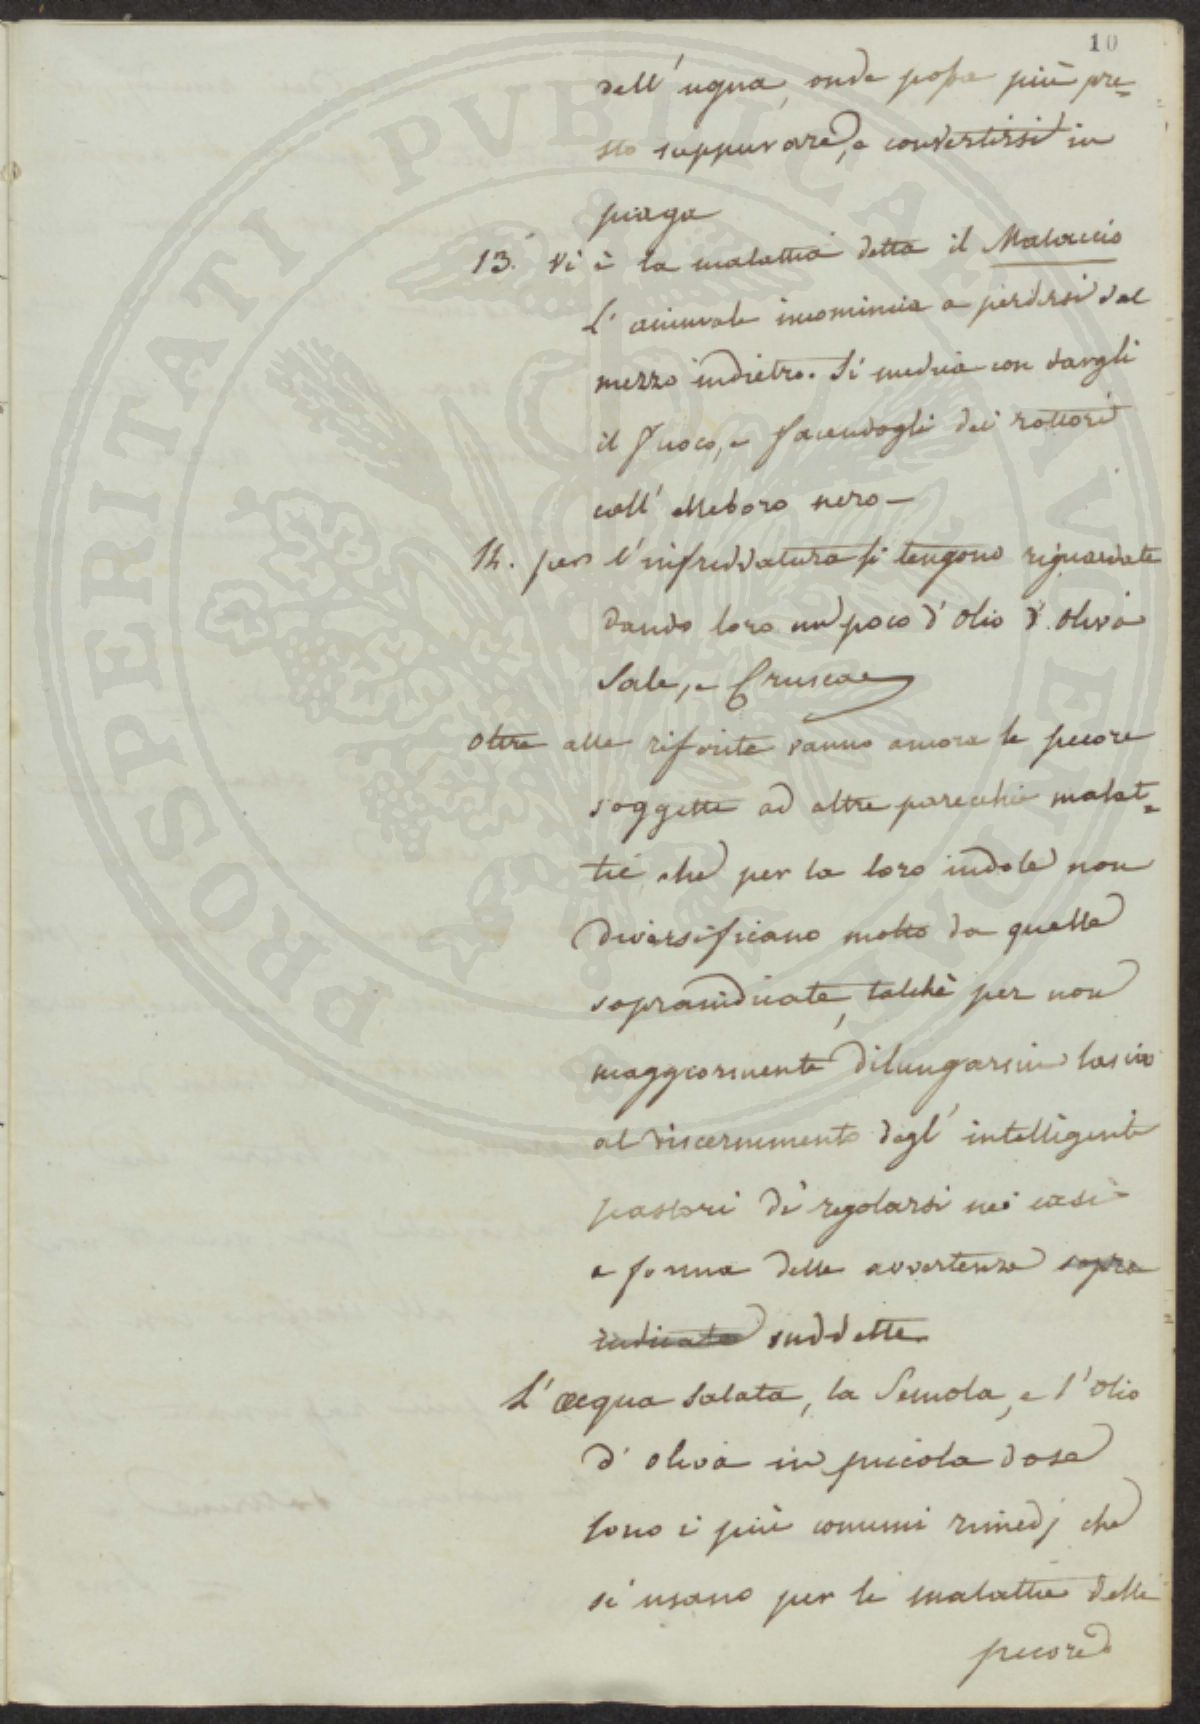 10
dell' ugna, onde possa più pre=
sto suppurare, e convertirsi in
piaga
13. Vi è la malattia detta il Malaccio
L' animale incomincia a perdersi dal
mezzo indietro. Si medica con dargli
il fuoco, e facendogli dei rottori
coll' elleboro nero —
14. per l'infreddatura si tengono riguardate
dando loro un poco d' olio d' oliva
Sale, e Crusca
Oltre alle riferite vanno ancora le pecore
soggette ad altre parecchie malat=
tie che per la loro indole non
diversificano molto da quelle
sopraindicate, talchè per non
maggiormente dilungarmi lascio
al discernimento degl' intelligenti
pastori di regolarsi nei casi
a forma delle avvertenze sopra
indicate suddette.
L' acqua salata, la Semola, e l' olio
d' oliva in piccola dose
sono i più comuni rimedj che
si usano per le malattie delle
pecore
PROSPERITATI PVBLICAE AVGENDAE